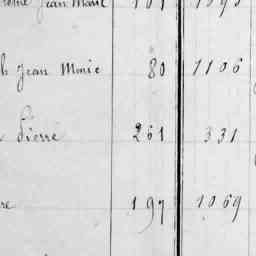 Jean Marie 101
h Jean Marie 80 1106
Pierre 261 331
re 197 1069